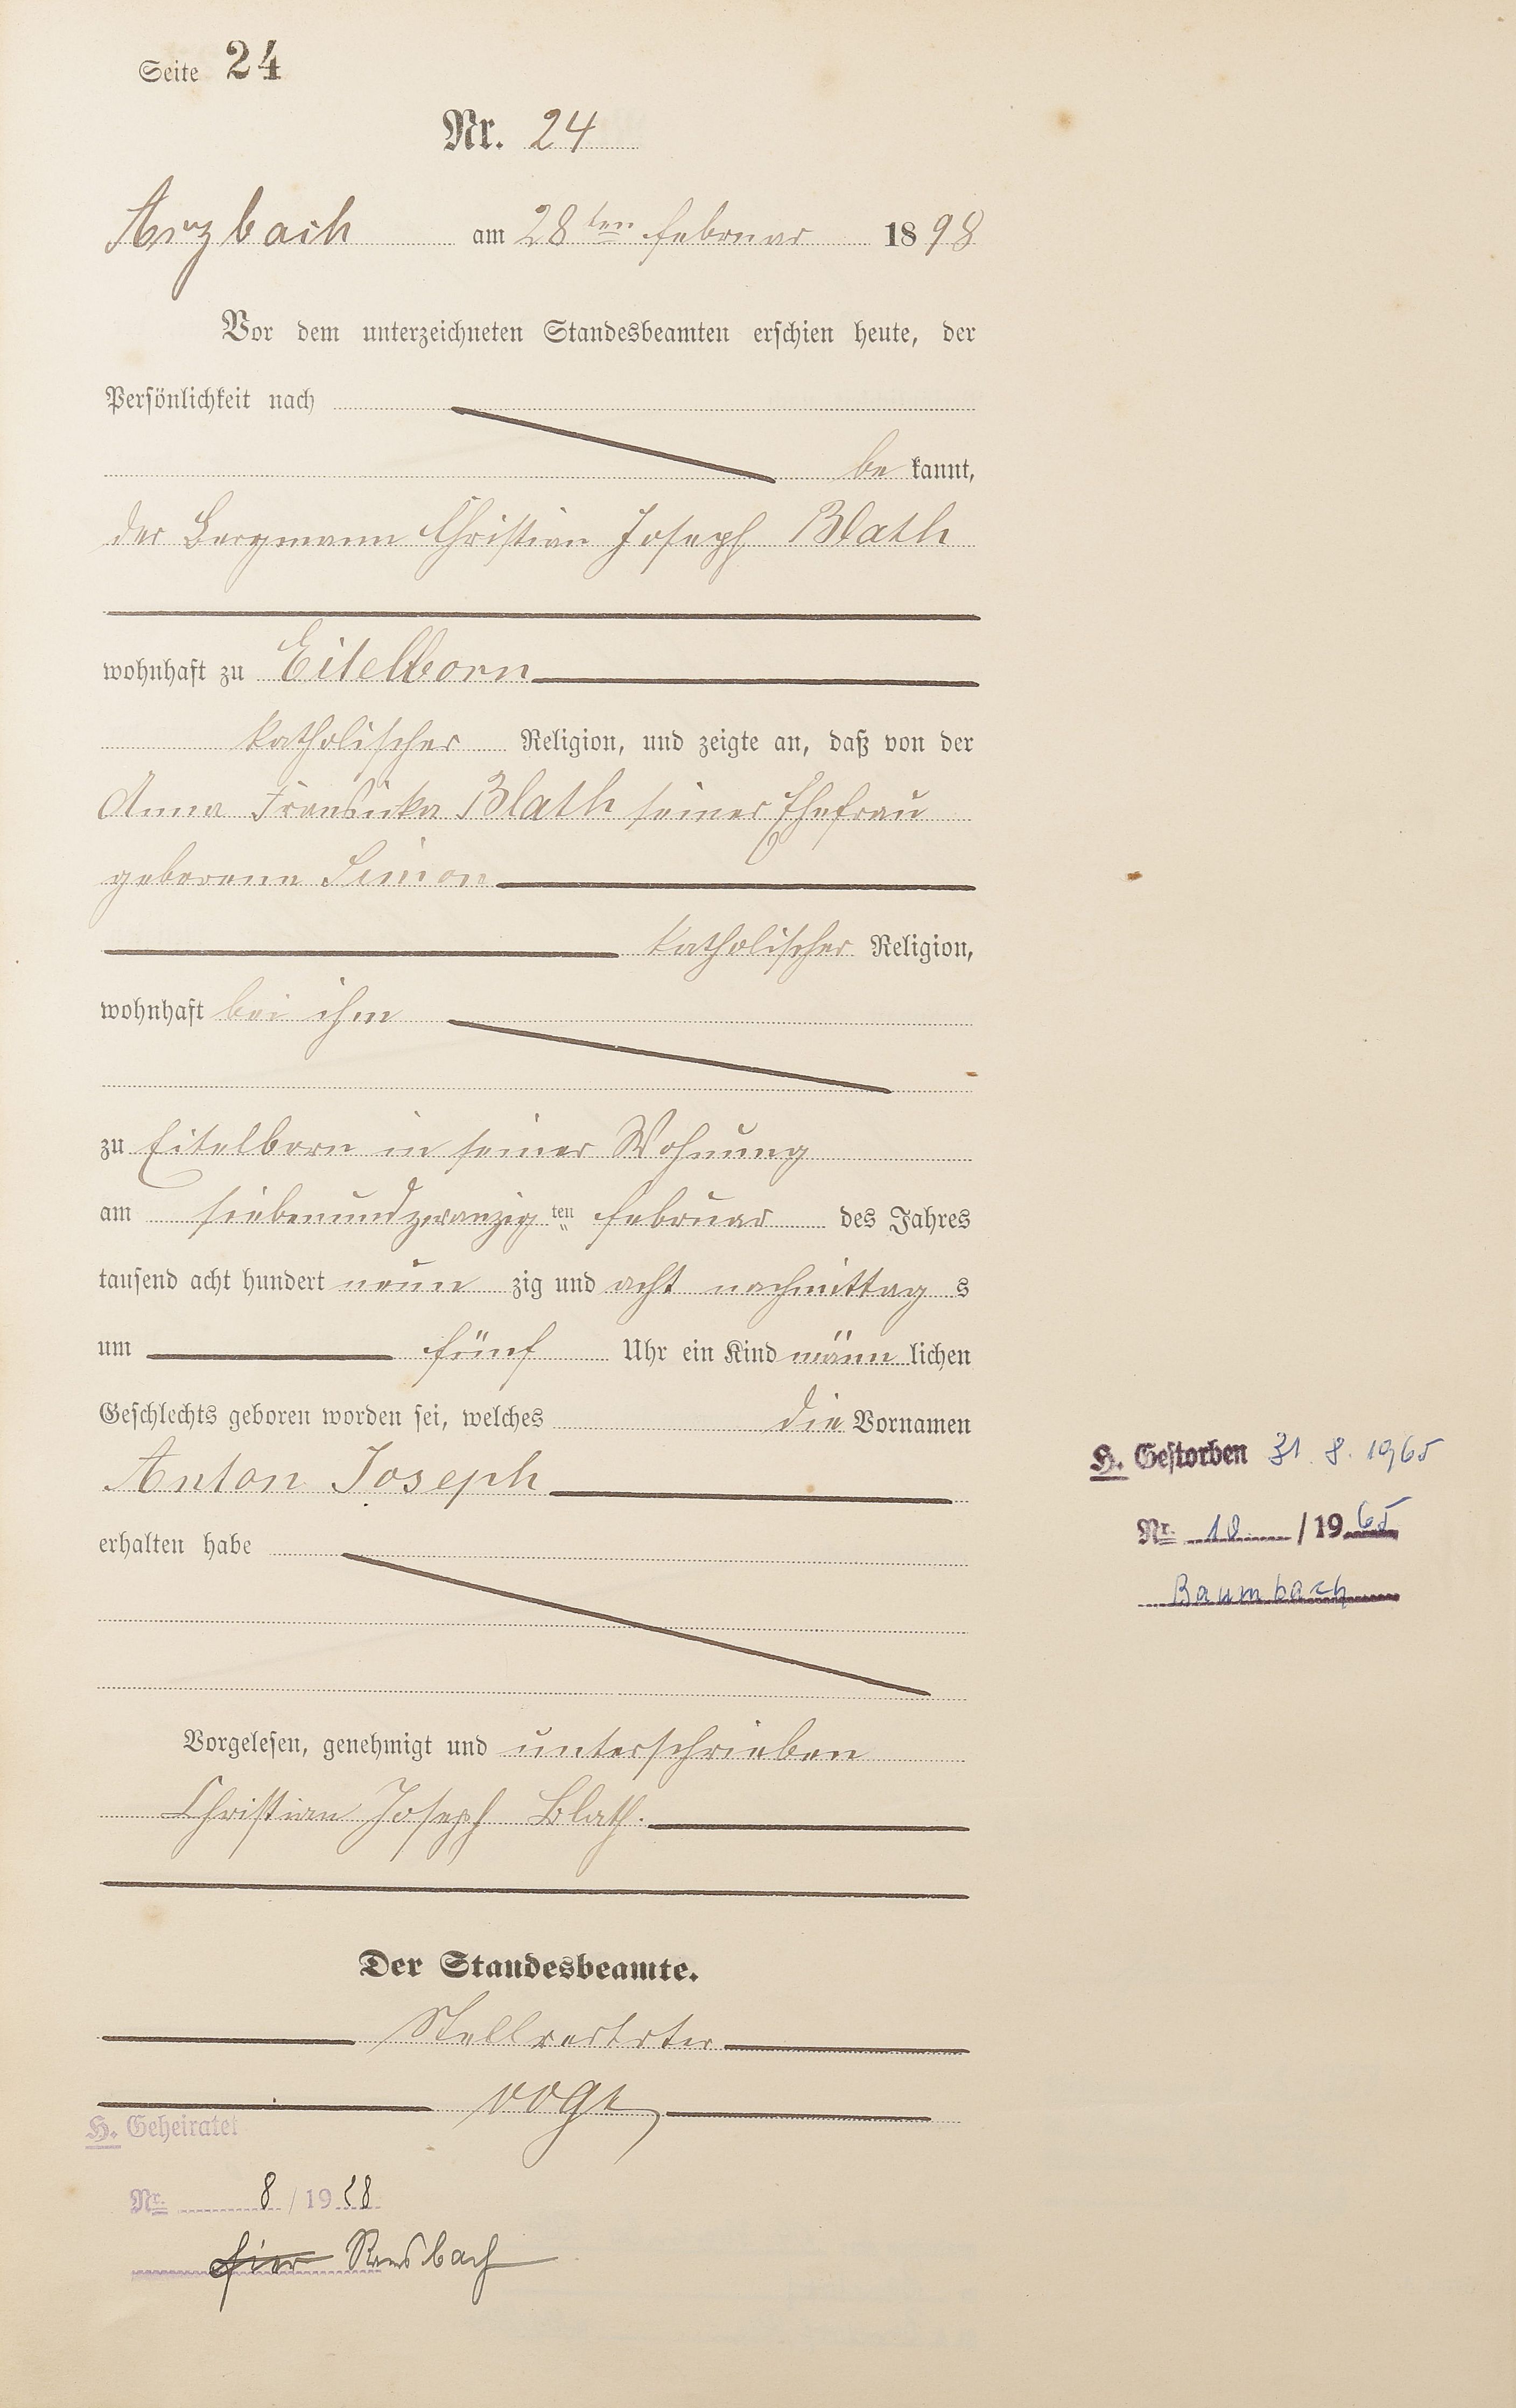 Seite 24
Nr. 24
Arzbach am 28ten Februar 1898
Vor dem unterzeichneten Standesbeamten erschien heute, der
Persönlichkeit nach
be kannt,
der Bergmann Christian Joseph Blath
wohnhaft zu Eitelborn
katholischer Religion, und zeigte an, daß von der
Anna Franziska Blath seiner Ehefrau
geborene Simon
katholischer Religion,
wohnhaft bei ihm
zu Eitelborn in seiner Wohnung
am siebenundzwanzig ten Februar des Jahres
tausend acht hundert neun zig und acht nachmittag s
um fünf Uhr ein Kind männ lichen
Geschlechts geboren worden sei, welches die Vornamen
Anton Joseph
erhalten habe
Vorgelesen, genehmigt und unterschrieben
Christian Joseph Blath.
Der Standesbeamte.
Stellvertreter
Vogt
H. Geheiratet
Nr. 8 / 1928
hier Ransbach
H. Gestorben 31. 8. 1965
Nr. 10 / 1965
Baumbach